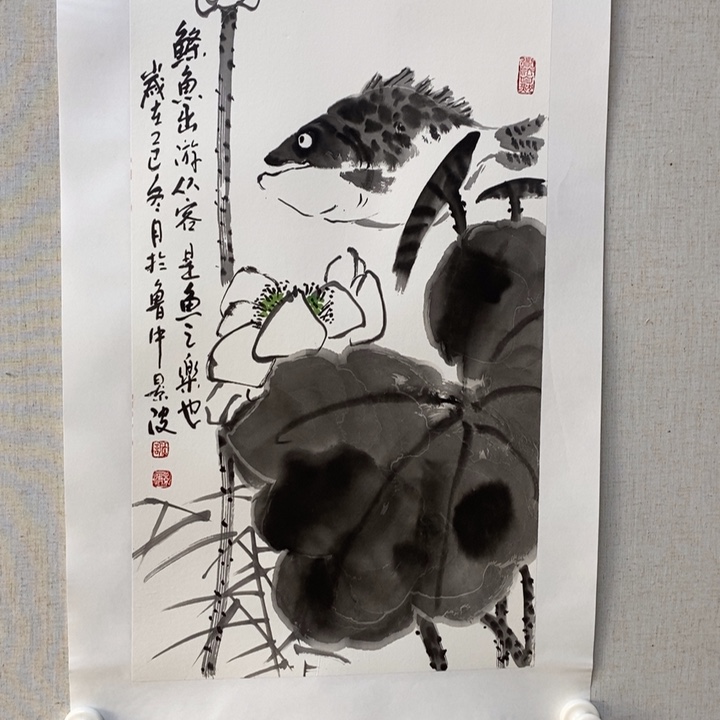 鲦魚出游从容是魚之樂也
歲在乙巳冬月於魯中景波